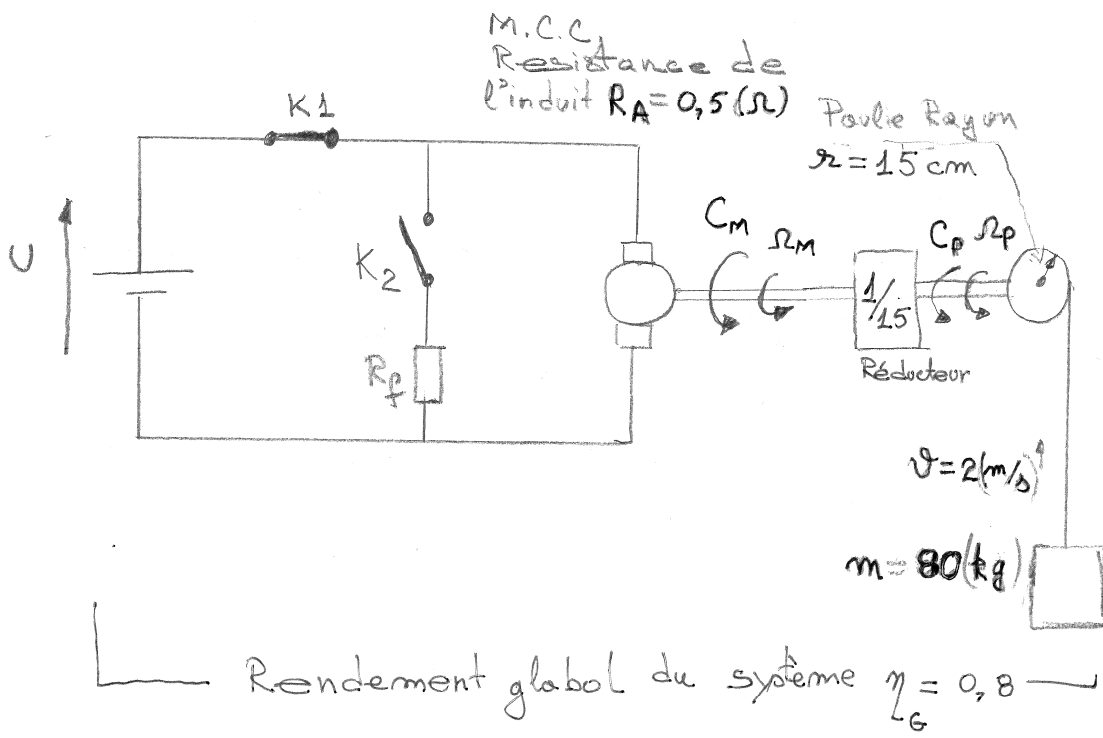 M.C.C.
Resistance de
l'induit R_A = 0,5 (Ω)
K1
Poulie Rayon
r = 15 cm
U
K2
C_M Ω_M
C_P Ω_P
1/15
R_f
Réducteur
v = 2 (m/s)
m = 80 (kg)
Rendement glabol du système η_G = 0,8